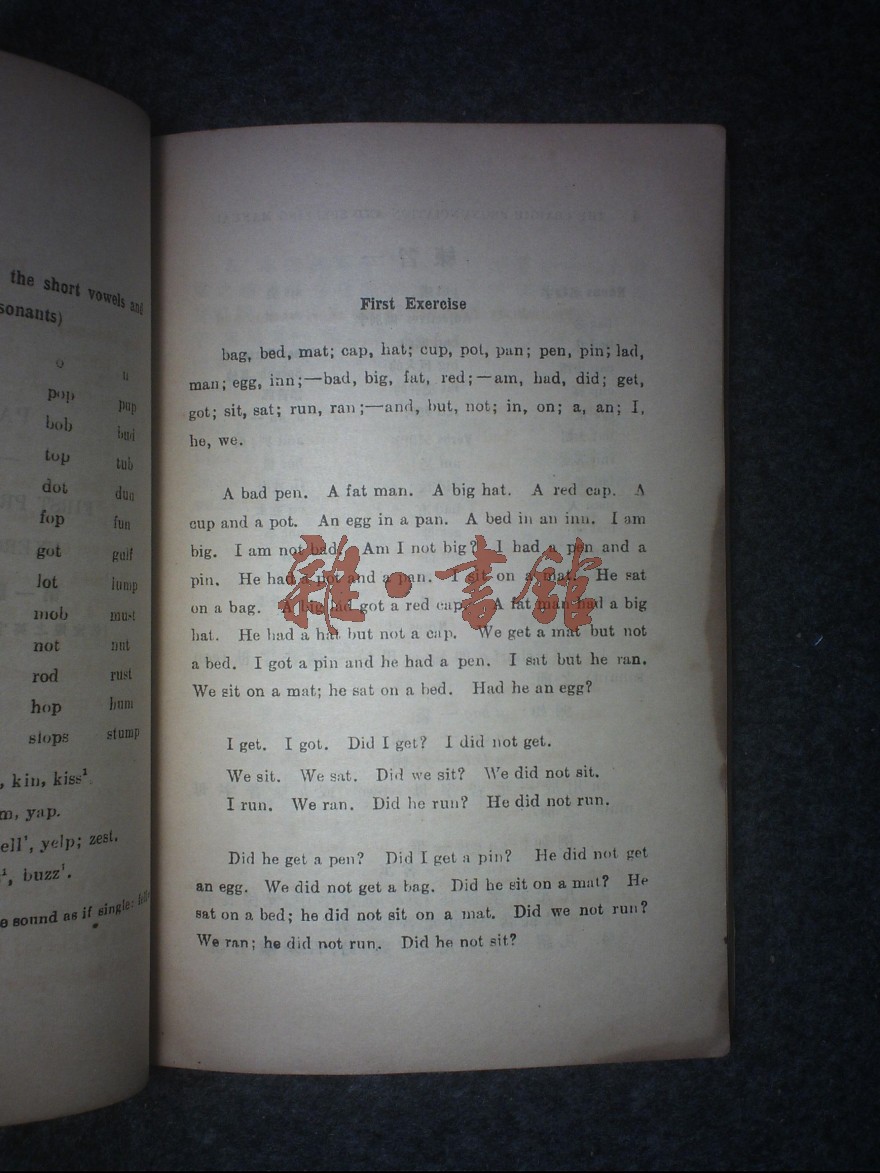 the short vowels and
sonants)
o u
pop pup
bob bud
top tub
dot dun
fop fun
got gulf
lot lump
mob must
not nut
rod rust
hop hum
stops stump
, kin, kiss¹.
m, yap.
ell¹, yelp; zest.
¹, buzz¹.
e sound as if single:
First Exercise
bag, bed, mat; cap, hat; cup, pot, pan; pen, pin; lad,
man; egg, inn;—bad, big, fat, red;—am, had, did; get,
got; sit, sat; run, ran;—and, but, not; in, on; a, an; I,
he, we.
A bad pen. A fat man. A big hat. A red cap. A
cup and a pot. An egg in a pan. A bed in an inn. I am
big. I am not bad. Am I not big? I had a pen and a
pin. He had a pot and a pan. I sit on a mat. He sat
on a bag. A big lad got a red cap. A fat man had a big
hat. He had a hat but not a cap. We get a mat but not
a bed. I got a pin and he had a pen. I sat but he ran.
We sit on a mat; he sat on a bed. Had he an egg?
I get. I got. Did I get? I did not get.
We sit. We sat. Did we sit? We did not sit.
I run. We ran. Did he run? He did not run.
Did he get a pen? Did I get a pin? He did not get
an egg. We did not get a bag. Did he sit on a mat? He
sat on a bed; he did not sit on a mat. Did we not run?
We ran; he did not run. Did he not sit?
雜·書館